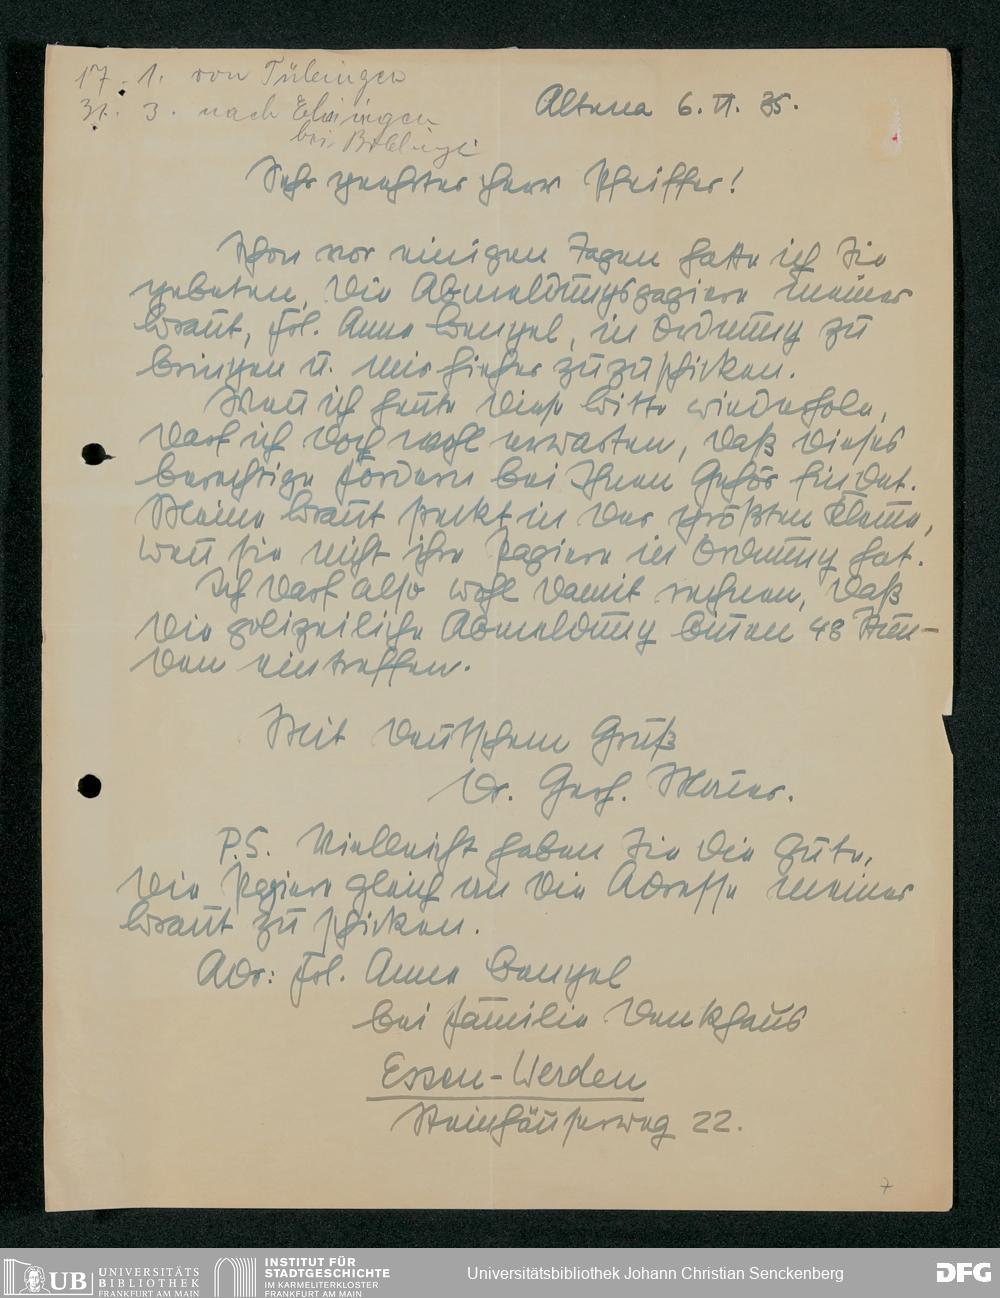 17. 1. von Tübingen
31. 3. nach Ehningen
bei Böblingen
Altena 6. II. 35.
Sehr geehrter Herr Pfeiffer!
Schon vor einigen Tagen hatte ich Sie
gebeten, die Abmeldungspapiere meiner
Braut, Frl. Anne Bengel, in Ordnung zu
bringen u. mir hieher zuzuschicken.
Wenn ich heute diese Bitte wiederhole,
darf ich doch wohl erwarten, daß dieses
berechtige Fordern bei Ihnen Gehör findet.
Meine Braut steckt in der größten Klemme,
wenn sie nicht ihre Papiere in Ordnung hat.
Ich darf also wohl damit rechnen, daß
die polizeiliche Abmeldung binnen 48 Stun-
den eintreffen.
Mit deutschem Gruß
Dr. Gerh.
P.S. Vielleicht haben Sie die Güte,
die Papiere gleich an die Adresse meiner
Braut zu schicken.
Adr: Frl. Anne Bengel
bei Familie Denkhaus
Essen-Werden
Steinhäuserweg 22.
7
UB UNIVERSITÄTS
BIBLIOTHEK
FRANKFURT AM MAIN
INSTITUT FÜR
STADTGESCHICHTE
IM KARMELITERKLOSTER
FRANKFURT AM MAIN
Universitätsbibliothek Johann Christian Senckenberg
DFG